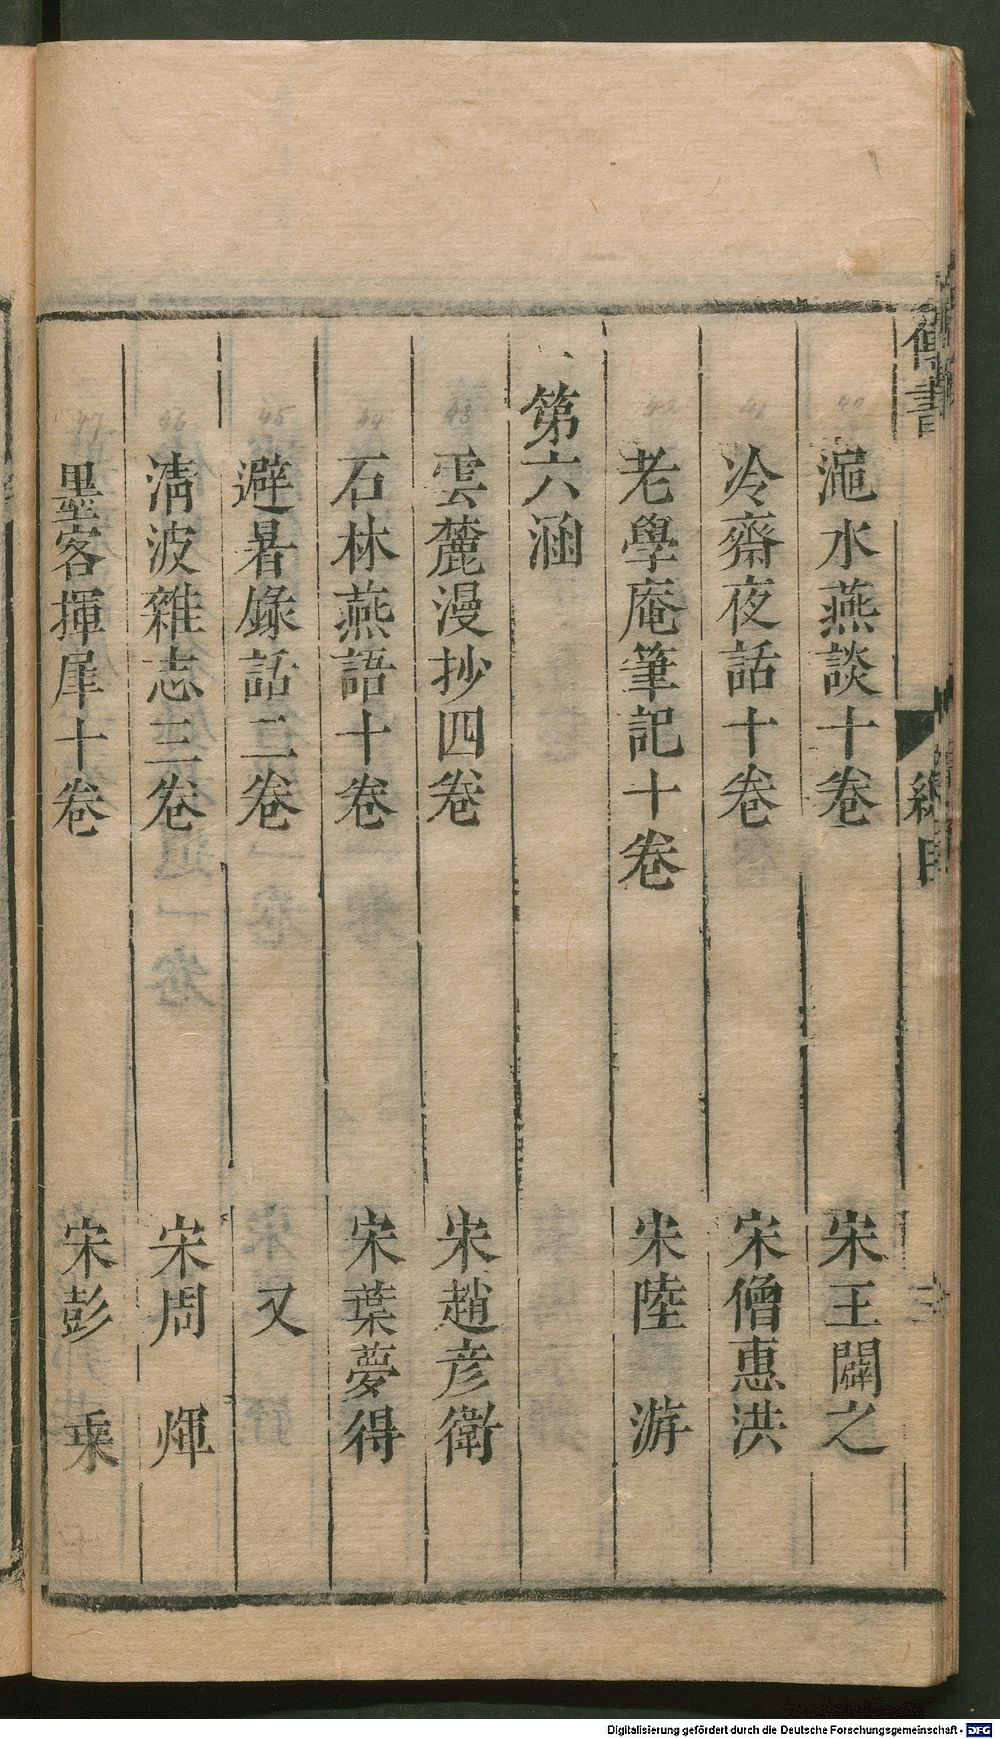 澠水燕談十卷 宋王闢之
冷齋夜話十卷 宋僧惠洪
老學庵筆記十卷 宋陸游
第六涵
雲麓漫抄四卷 宋趙彦衛
石林燕語十卷 宋葉夢得
避暑錄話二卷 又
清波雜志三卷 宋周煇
墨客揮犀十卷 宋彭乘
40
41
42
43
44
45
46
47
Digitalisierung gefördert durch die Deutsche Forschungsgemeinschaft - DFG